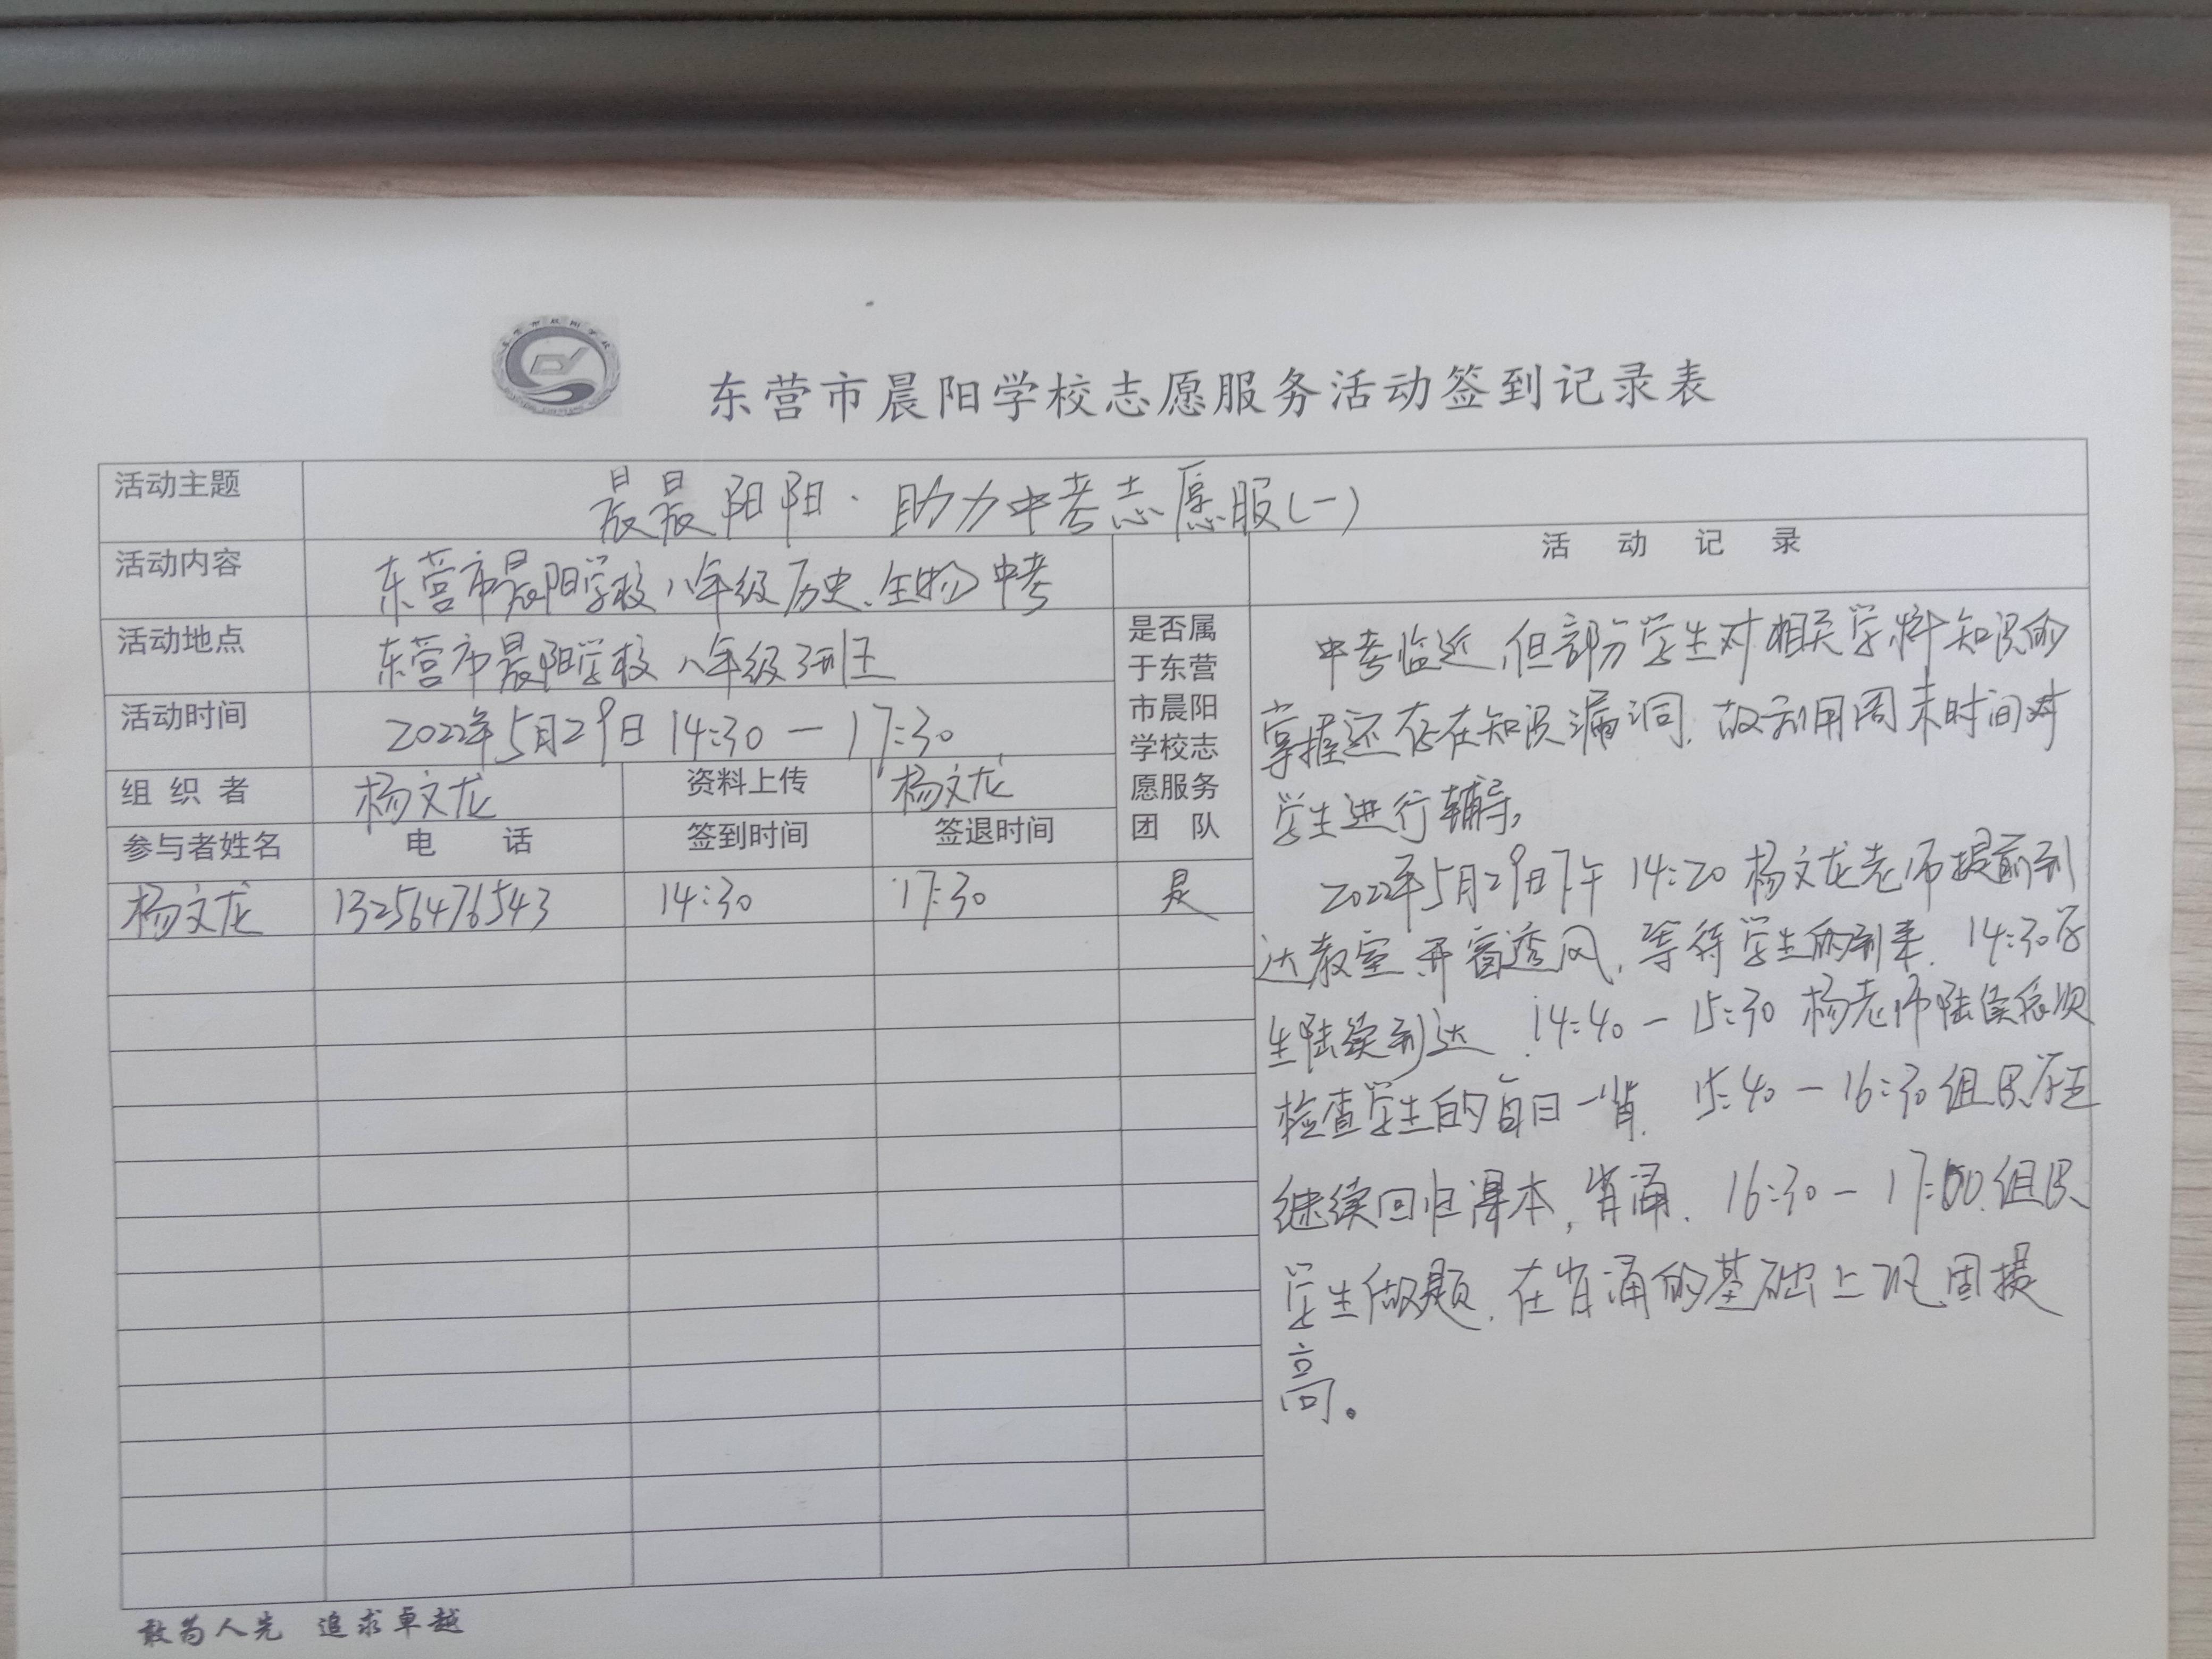 东营市晨阳学校志愿服务活动签到记录表
活动主题 晨晨阳阳·助力中考志愿服(一)
活动内容 东营市晨阳学校八年级历史、生物中考
活动地点 东营市晨阳学校八年级3班
活动时间 2022年5月29日 14:30—17:30
组织者 杨文龙 资料上传 杨文龙
参与者姓名 电话 签到时间 签退时间
是否属
于东营
市晨阳
学校志
愿服务
团队
杨文龙 13256476543 14:30 17:30 是
活动记录
中考临近,但部分学生对相关学科知识的
掌握还存在知识漏洞.故利用周末时间对
学生进行辅导,
2022年5月29日下午14:20杨文龙老师提前到
达教室开窗透风,等待学生的到来.14:30学
生陆续到达.14:40-15:30杨老师陆续依次
检查学生的每日一背.15:40-16:30组织学生
继续回归课本,背诵.16:30-17:00.组织
学生做题.在背诵的基础上巩固提
高。
敢为人先 追求卓越